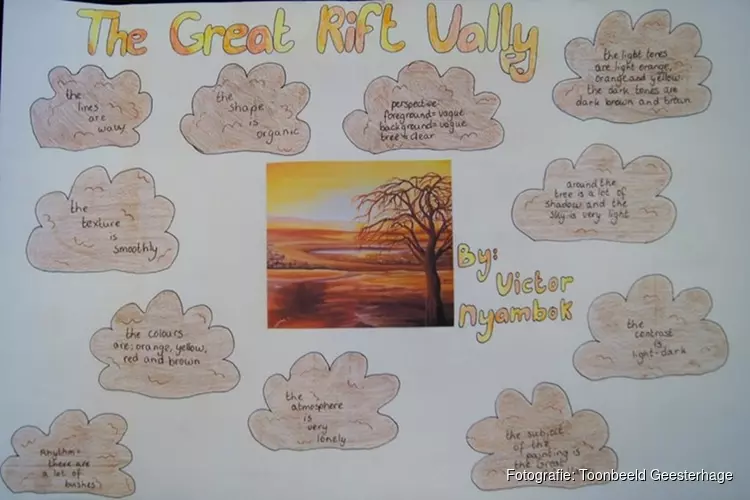 The Great Rift Vally
the
lines
are
wavy
the
shape
is
organic
perspective:
foreground = vague
background = vague
tree = clear
the light tones
are light orange,
orange and yellow.
the dark tones are
dark brown and brown
the
texture
is
smoothly
around the
tree is a lot of
shadow and the
sky is very light
By:
Victor
Nyambok
the colours
are: orange, yellow,
red and brown
the
contrast
is
light-dark
the
atmosphere
is
very
lonely
Rhythm =
there are
a lot of
bushes
the subject
of the
painting is
the Great
Fotografie: Toonbeeld Geesterhage